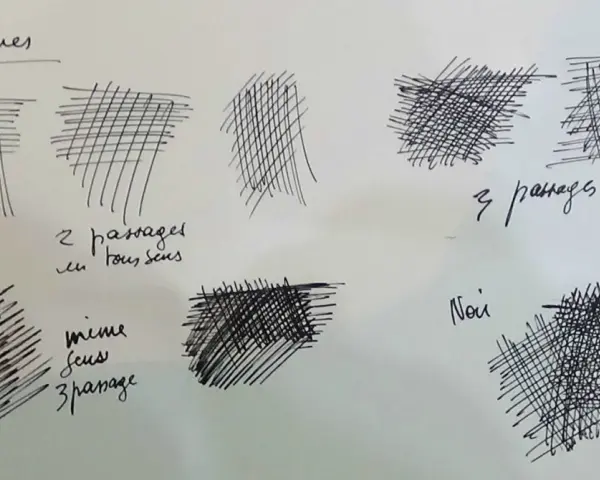 2 passages
en tous sens
3 passages
même
sens
3 passage
Noir